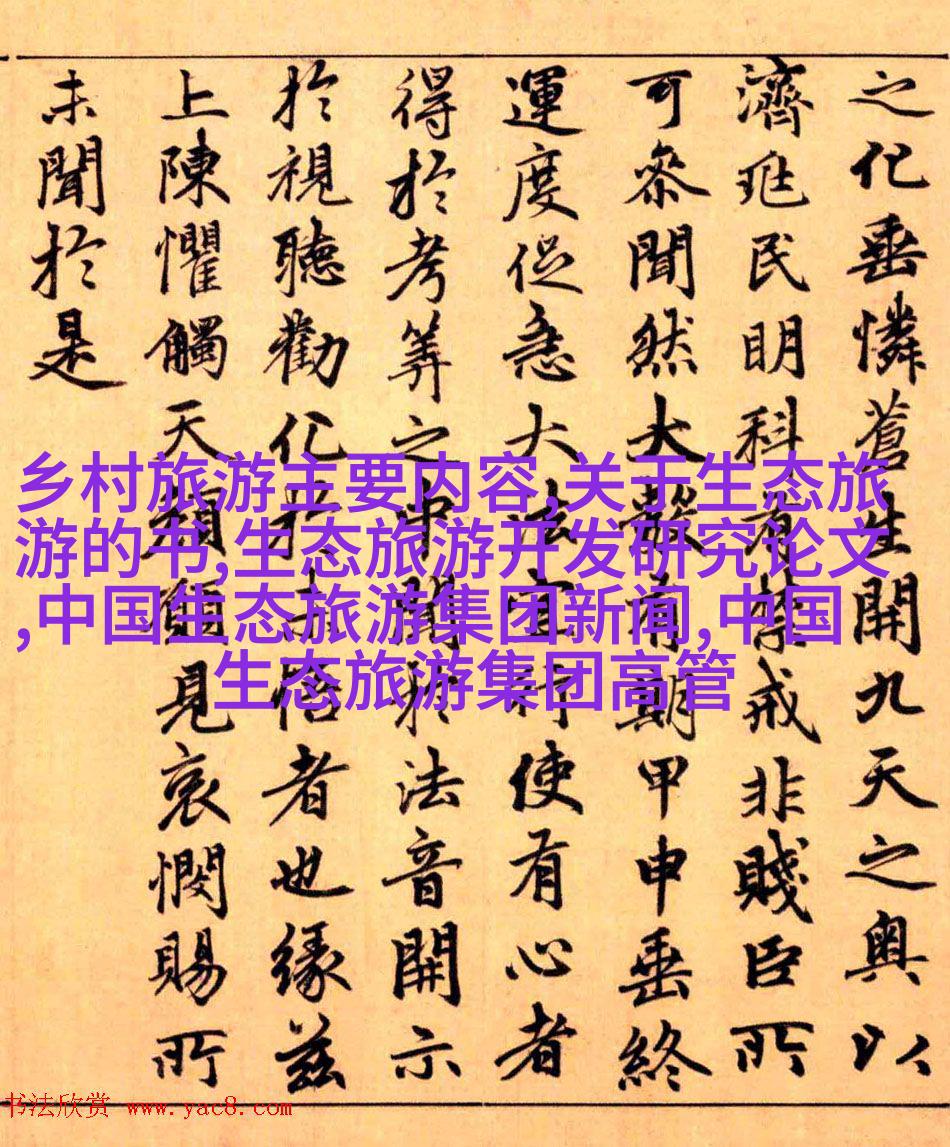 之化垂憐蒼生開九天之奥以
濟兆民明科有禁戒非賤臣所
可叅聞然大數有期甲申垂終
運度促急大法宜行使有心者
得於考筭之中聞於法音開示
於視聽勸化於未悟者也緣兹
上陳懼觸天顔儻見哀憫賜所
未聞於是
乡村旅游主要内容,关于生态旅
游的书,生态旅游开发研究论文
,中国生态旅游集团新闻,中国
生态旅游集团高管
书法欣赏 www.yac8.com